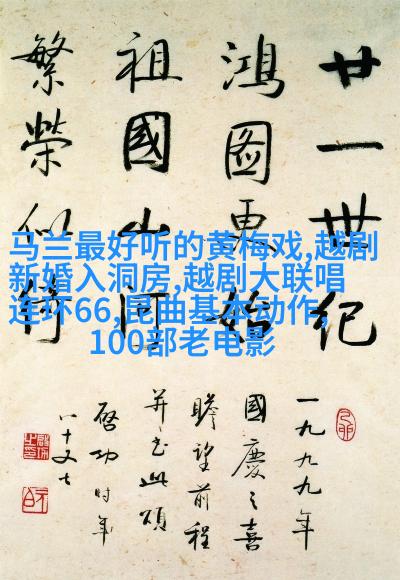 廿一世紀
鴻圖更始
祖國山河
繁榮似
马兰最好听的黄梅戏,越剧
新婚入洞房,越剧大联唱
连环66,昆曲基本动作,
100部老电影
一九九九年
國慶之喜
瞻望前程
并书此頌
啓功时年
八十又七